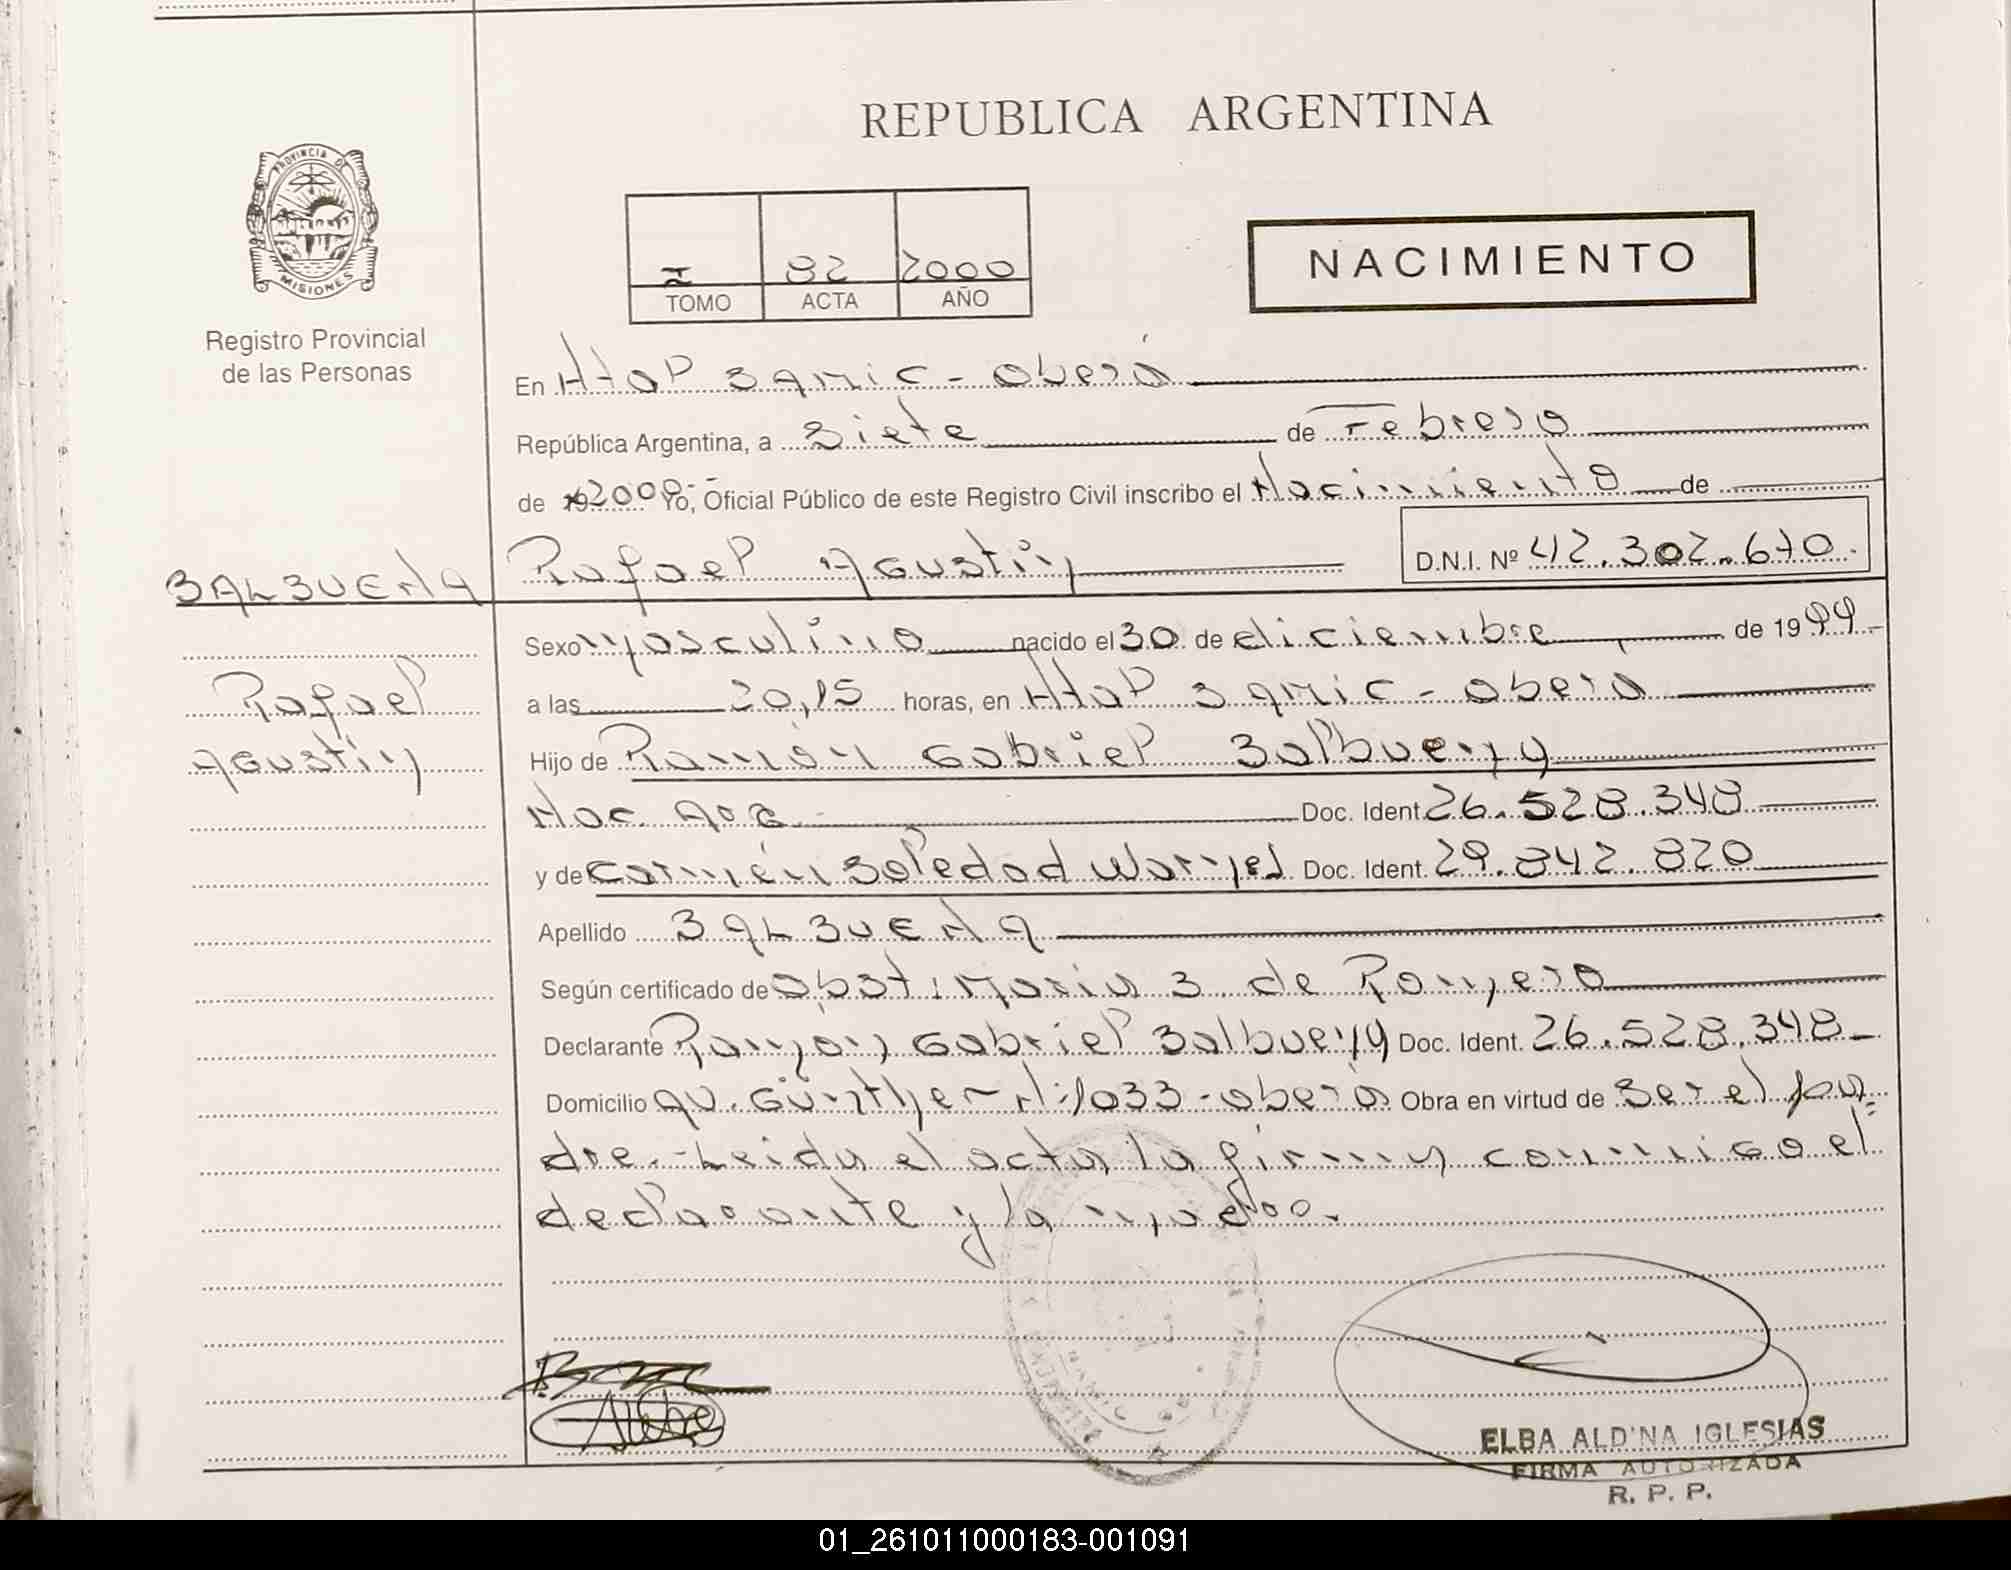 REPUBLICA ARGENTINA
PROVINCIA DE
MISIONES
Registro Provincial
de las Personas
I 82 2000
TOMO ACTA AÑO
NACIMIENTO
En Htal Samic - Oberá
República Argentina, a Siete de Febrero
de 19 2000 Yo, Oficial Público de este Registro Civil inscribo el Nacimiento de
BALBUENA Rafael Agustín D.N.I. Nº 42.302.670
Sexo Masculino nacido el 30 de diciembre de 1999
Rafael
a las 20,15 horas, en Htal Samic - Oberá
Agustín
Hijo de Ramón Gabriel Balbuena
Nac. Arg. Doc. Ident. 26.528.348
y de Carmen Soledad Doc. Ident. 29.842.820
Apellido BALBUENA
Según certificado de Obst: María S. de Romero
Declarante Ramón Gabriel Balbuena Doc. Ident. 26.528.348
Domicilio Av. Günther Nº 1033 - Oberá Obra en virtud de Ser el pa=
dre.- Leida el acta la firman conmigo el
declarante y la madre.
ELBA ALDINA IGLESIAS
FIRMA AUTORIZADA
R. P. P.
01_261011000183-001091